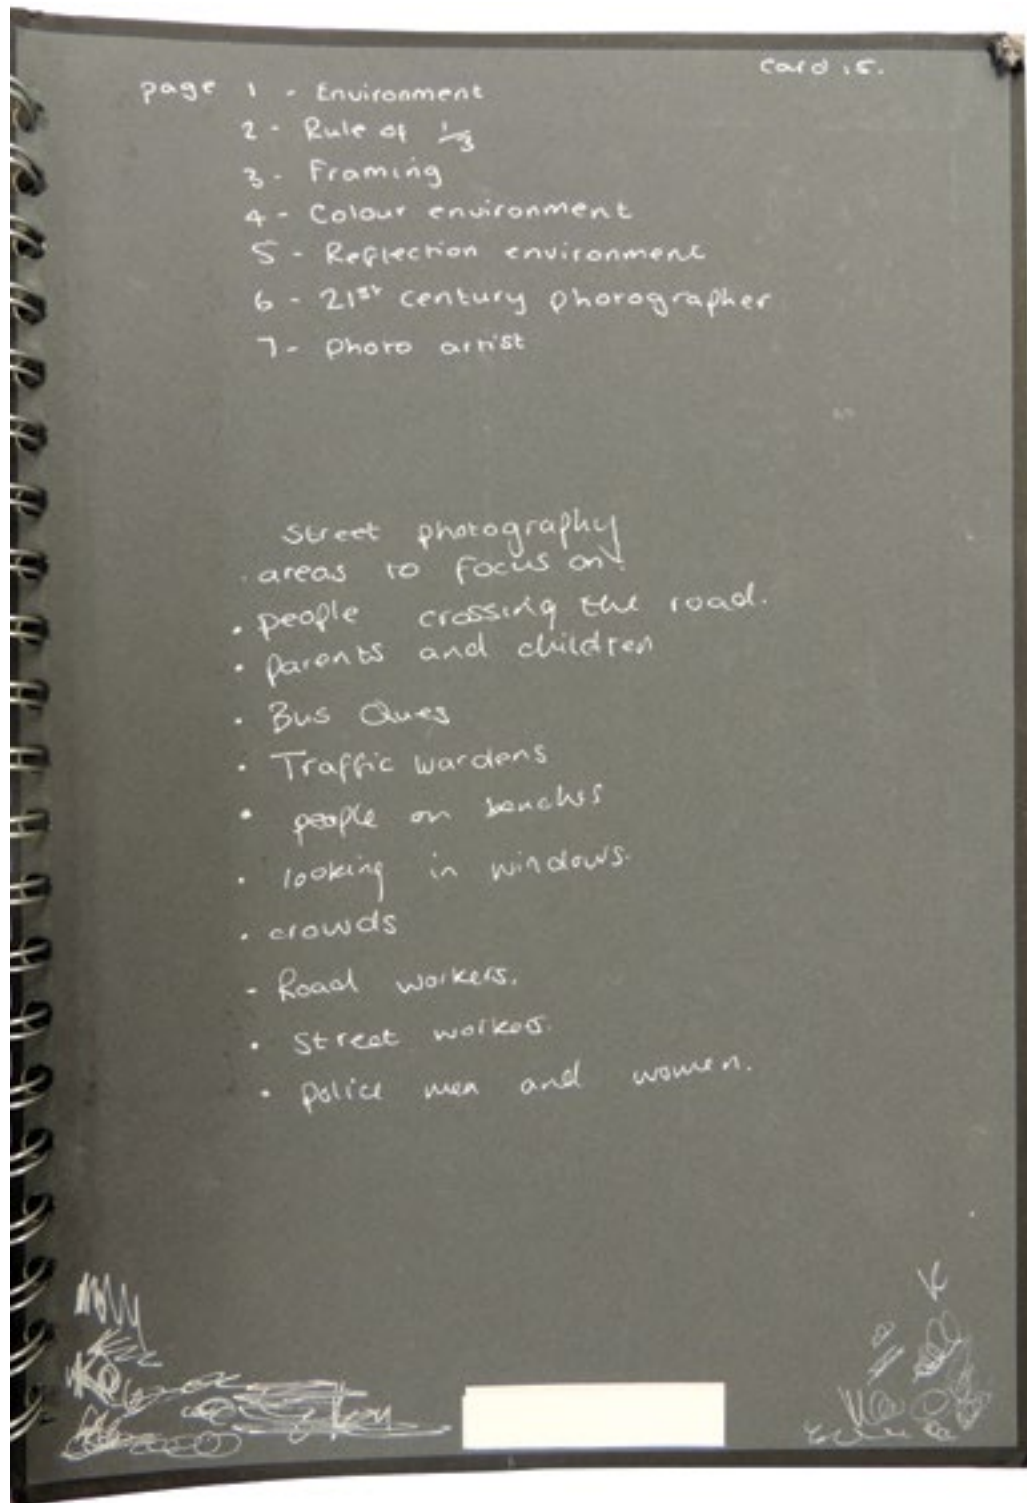 card 15.
page 1 - Environment
2 - Rule of 1/3
3 - Framing
4 - Colour environment
5 - Reflection environment
6 - 21st century photographer
7 - photo artist
Street photography
. areas to focus on.
. people crossing the road.
. parents and children
. Bus Ques
. Traffic wardens
. people on benches
. looking in windows.
. crowds
- Road workers.
. Street workers.
. police men and women.